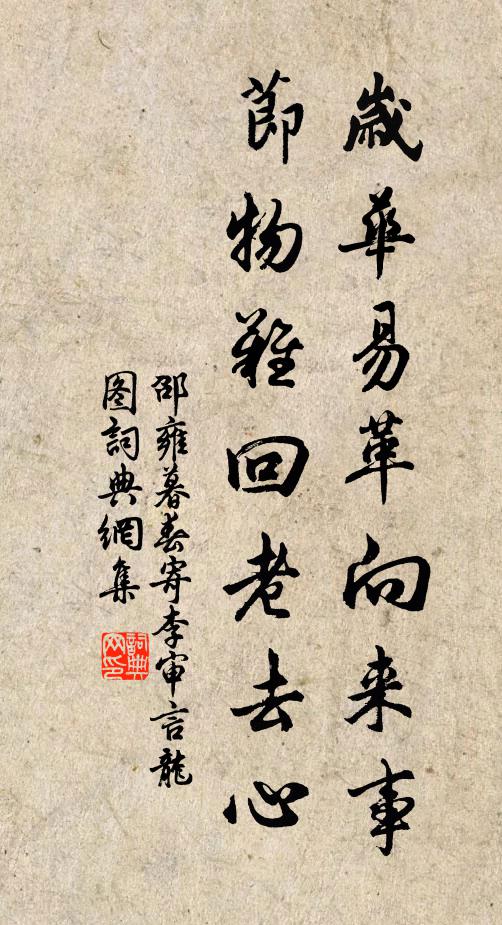 歲華易革向来事
節物難回老去心
邵雍暮春寄李审言龍
图詞典網集
詞典
网印